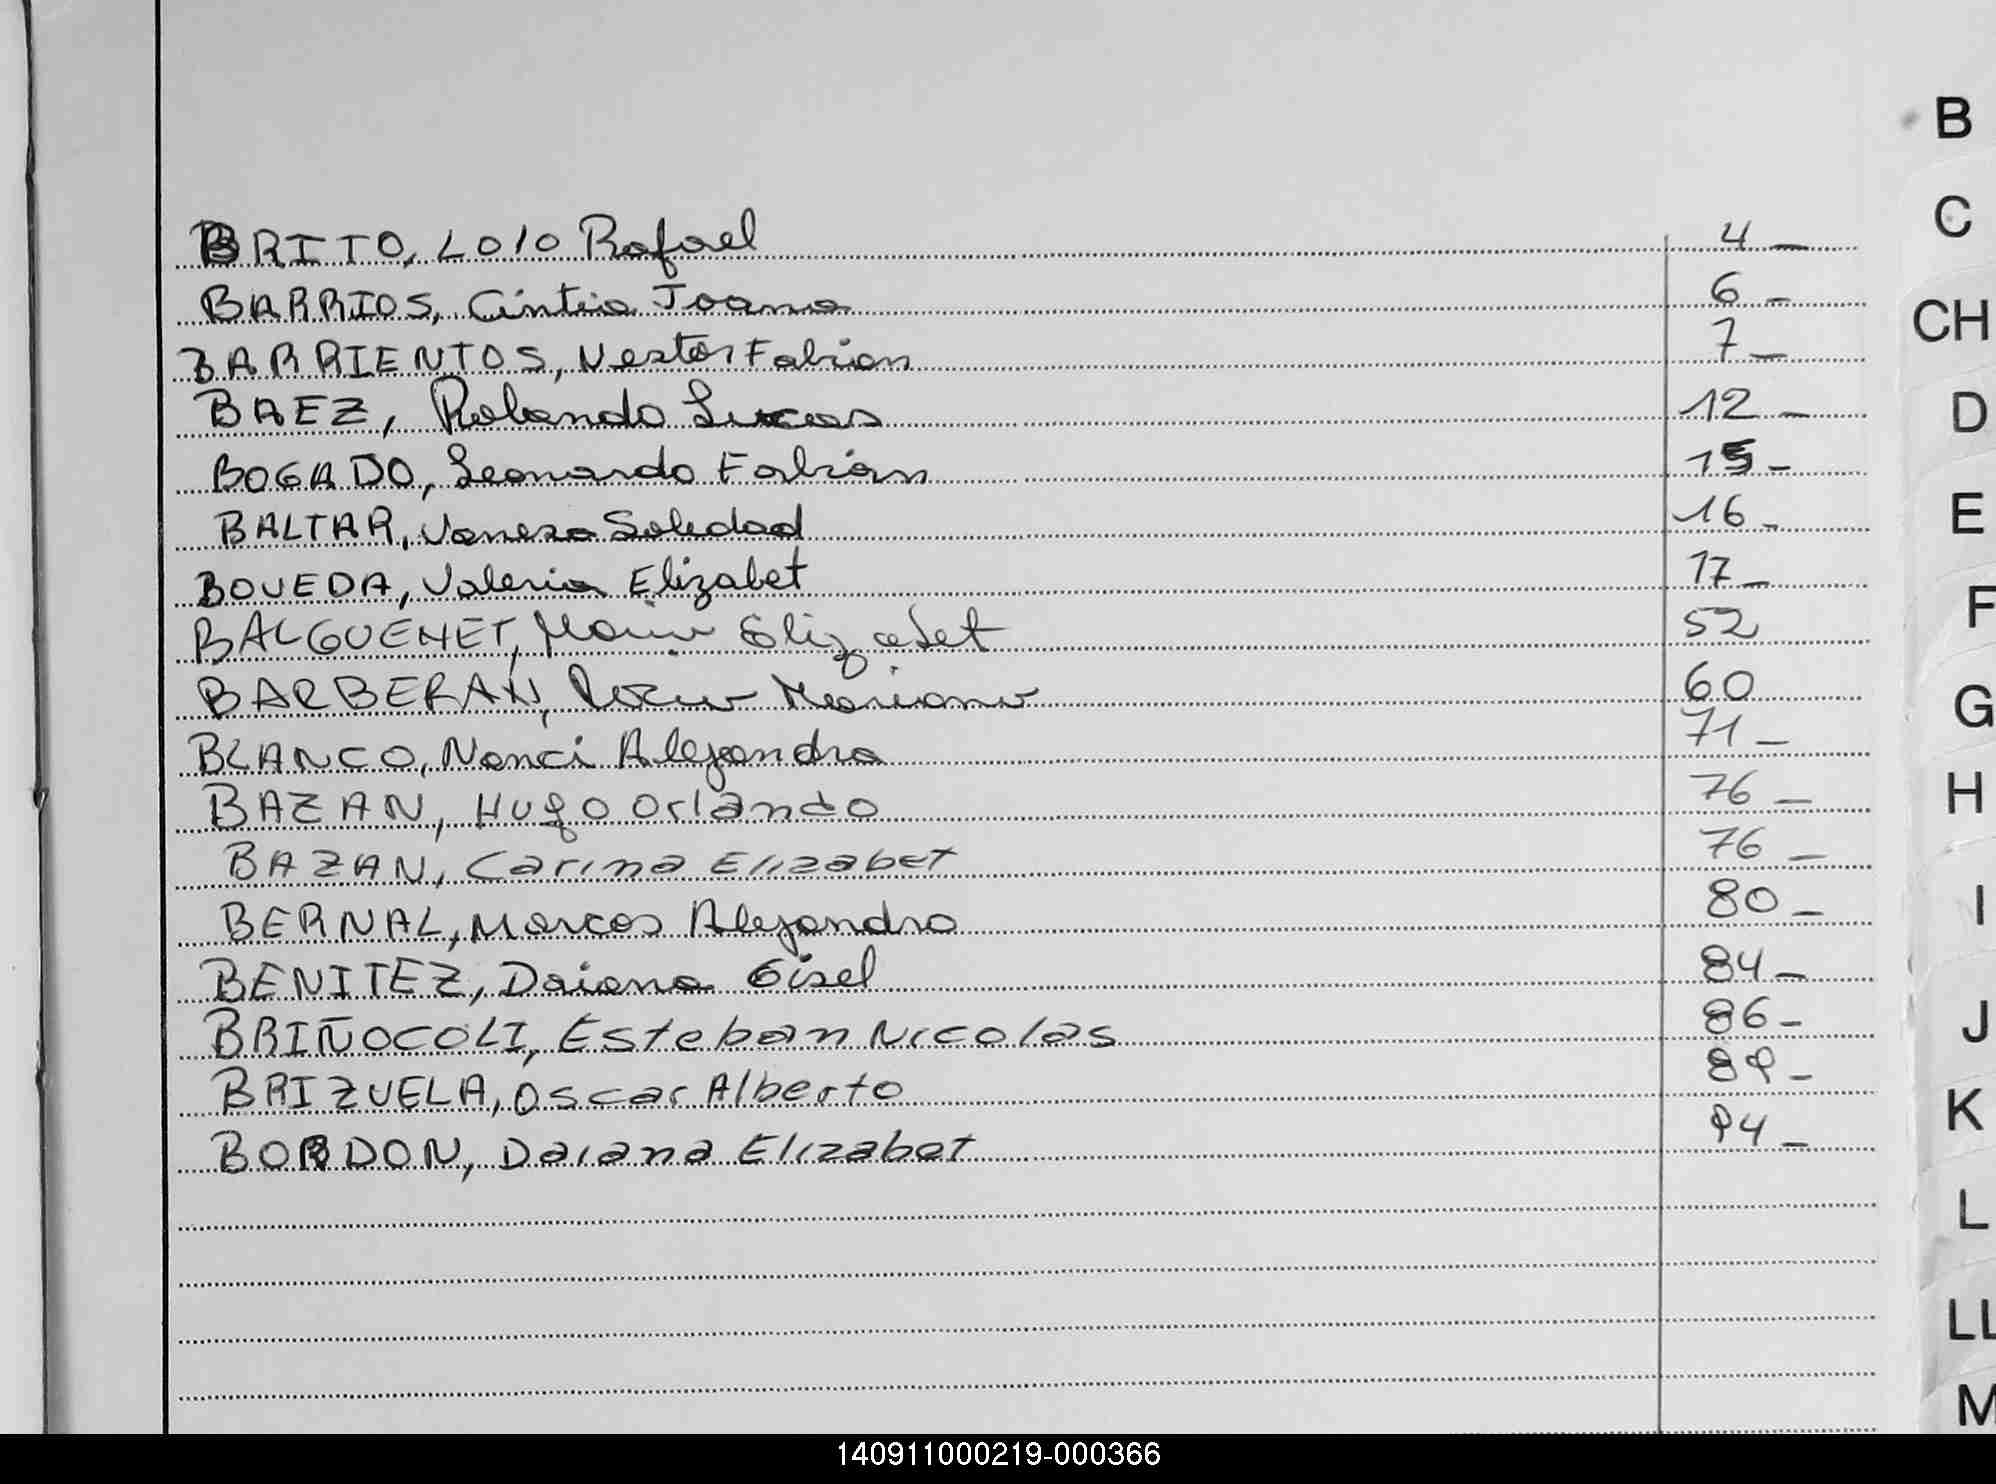 BRITO, Lolo Rafael 4 -
BARRIOS, Cintia Joana 6 -
BARRIENTOS, Nestor Fabian 7 -
BAEZ, Rolando Lucas 12 -
BOGADO, Leonardo Fabián 15 -
BALTAR, Vanesa Soledad 16 -
BOVEDA, Valeria Elizabet 17 -
BALGUENET, Maria Elizabet 52
BARBERAN, Rocio Mariana 60
BLANCO, Nanci Alejandra 71 -
BAZAN, Hugo Orlando 76 -
BAZAN, Carina Elizabet 76 -
BERNAL, Marcos Alejandro 80 -
BENITEZ, Daiana Gisel 84 -
BRIÑOCOLI, Esteban Nicolas 86 -
BRIZUELA, Oscar Alberto 89 -
BORDON, Daiana Elizabet 94 -
B
C
CH
D
E
F
G
H
I
J
K
L
LL
M
140911000219-000366